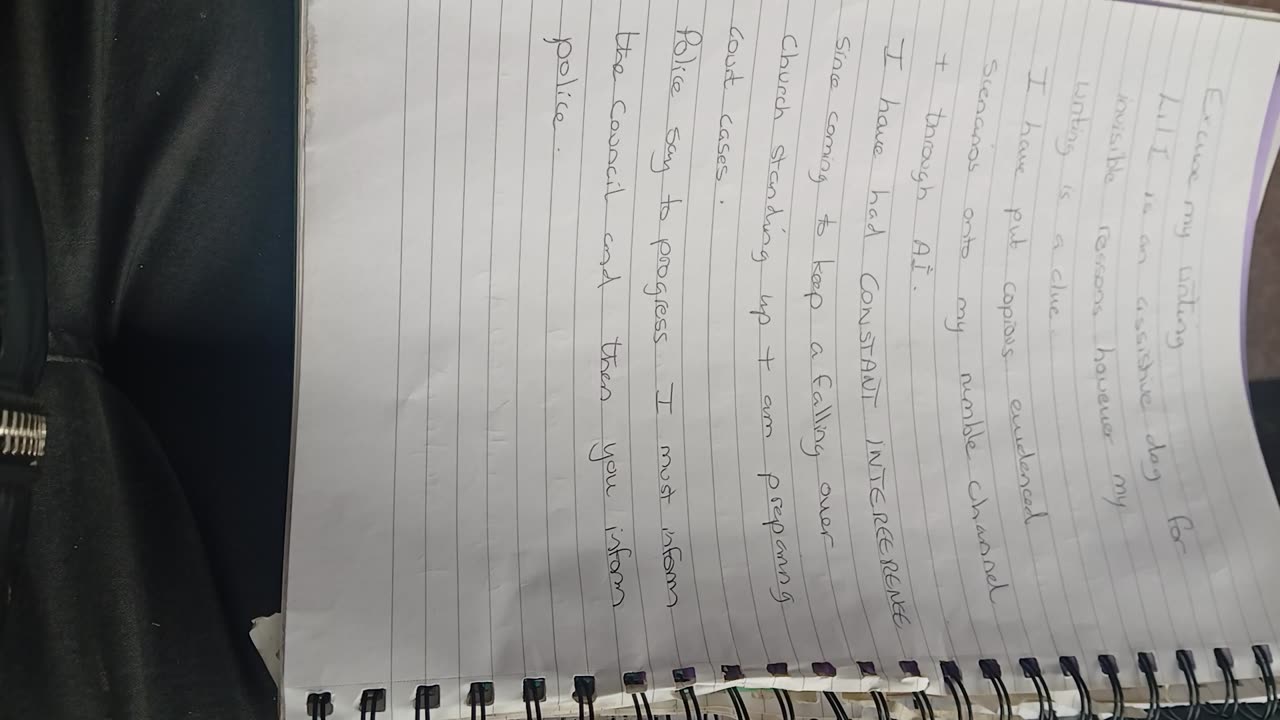 Excuse my writing
Lil I is an assistive dog for
invisible reasons however my
writing is a clue.
I have put copious evidenced
Scenarios onto my rumble channel
+ through AI.
I have had CONSTANT INTEREERENCE
Since coming to keep a falling over
Church standing up + am preparing
court cases.
Police say to progress I must inform
the council and then you inform
police.